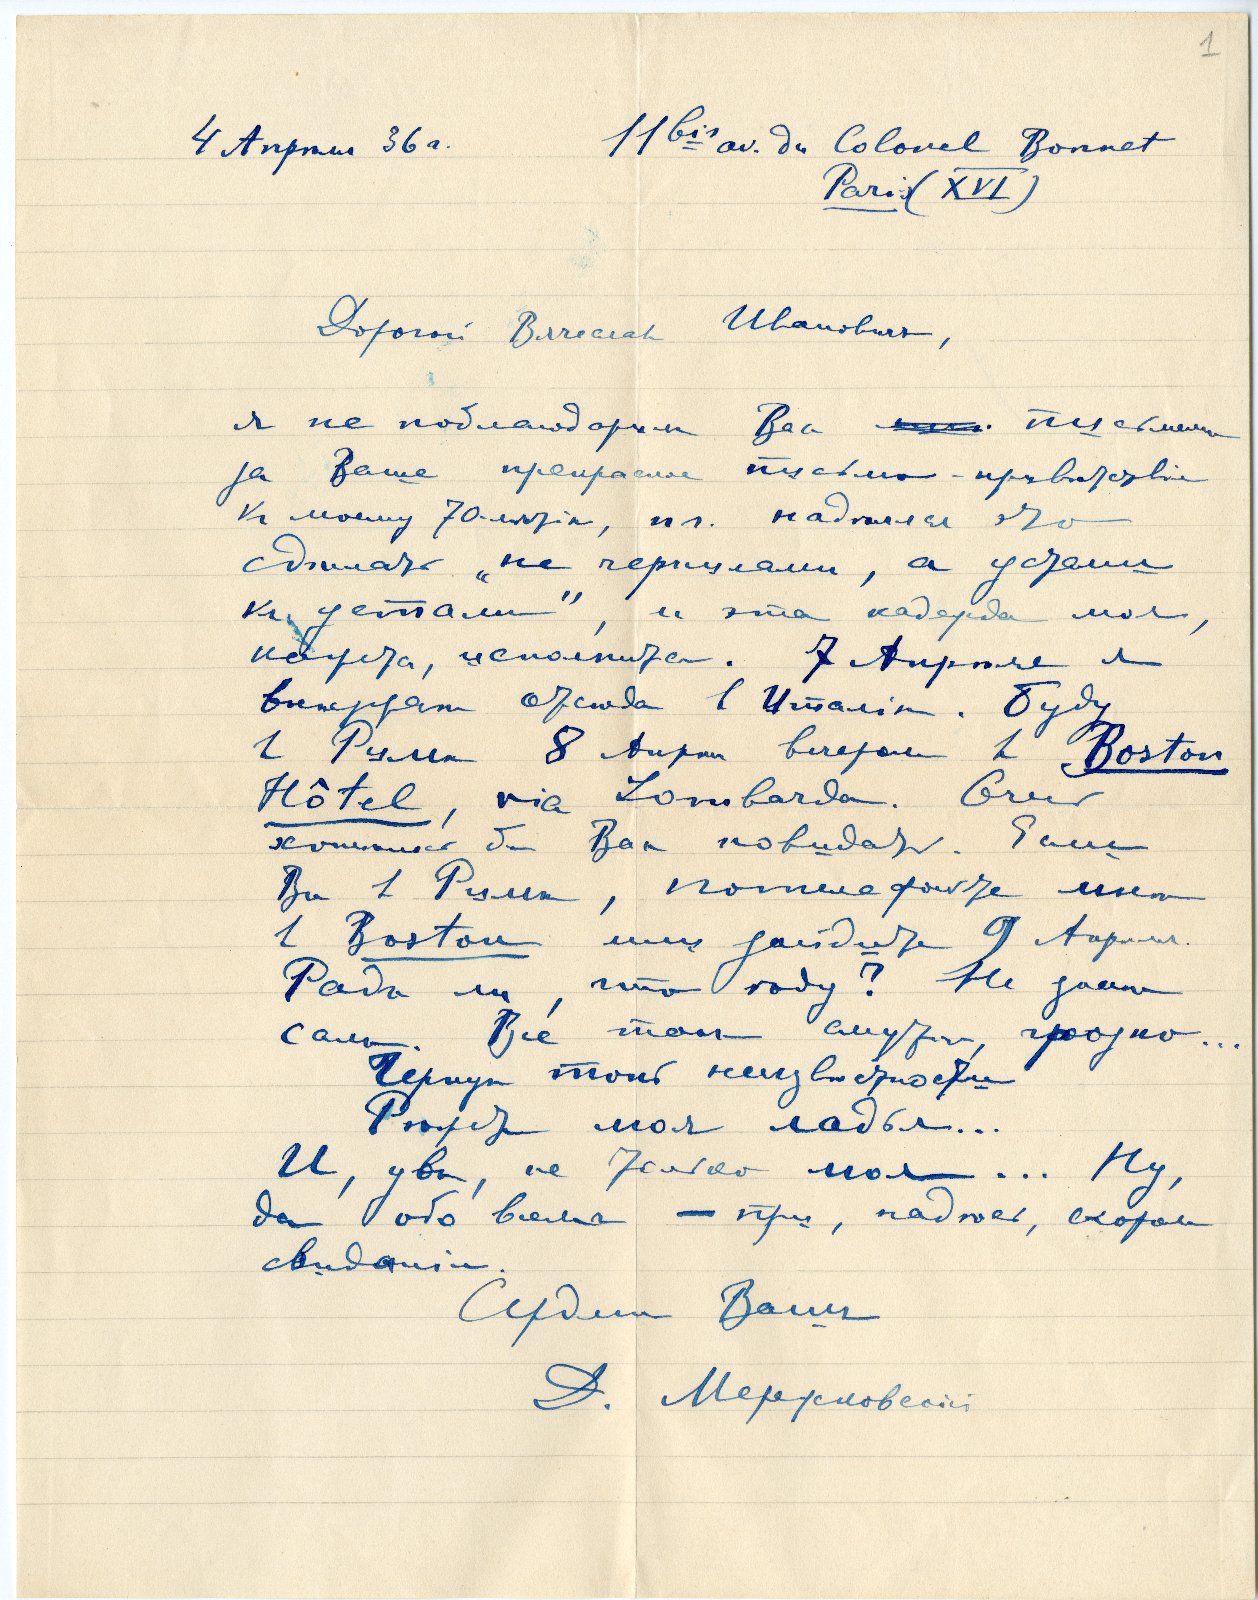 1
4 Апрѣля 36 г. 11 bis av. du Colonel Bonnet
Paris (XVI)
Дорогой Вячеслав Иванович,
я не поблагодарил Вас письменно
за Ваше прекрасное письмо-привѣтствіе
к моему 70-лѣтію, п. ч. надѣялся это
сдѣлать „не чернилами, а устами
къ устам", и эта надежда моя,
кажется, исполнится. 7 Апрѣля я
выѣзжаю отсюда в Италію. Буду
в Римѣ 8 Апрѣля вечером в Boston
Hôtel, via Lombarda. Очень
хотѣлось бы Вас повидать. Если
Вы в Римѣ, потелефонируйте мнѣ
в Boston или зайдите 9 Апрѣля.
Радъ ли, что ѣду? Не знаю
самъ. Всё так смутно, грозно...
Черную топь неизвѣстности
Рѣжет моя ладья...
И, увы, не только моя... Ну,
да обо всемъ — при, надѣюсь, скоромъ
свиданіи.
Сердечно Вашъ
Д. Мережковскій